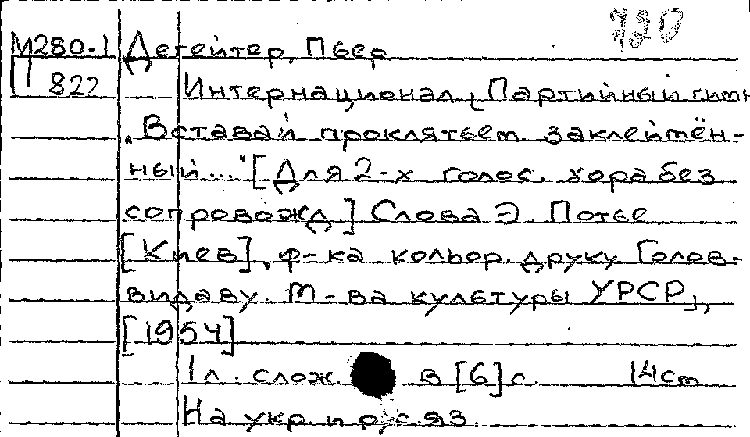 720
М280-1 Дегейтер, Пьер
П 822 Интернационал, Партийный гимн
"Вставай проклятьем заклеймён-
ный..." [Для 2-х голос. хора без
сопровожд.] Слова Э. Потье
[Киев], ф-ка кольор. друку Голов-
видаву. М-ва культуры УРСР,
[1954]
1 л. слож. в [6] с. 14 cm
На укр. и рус. яз.